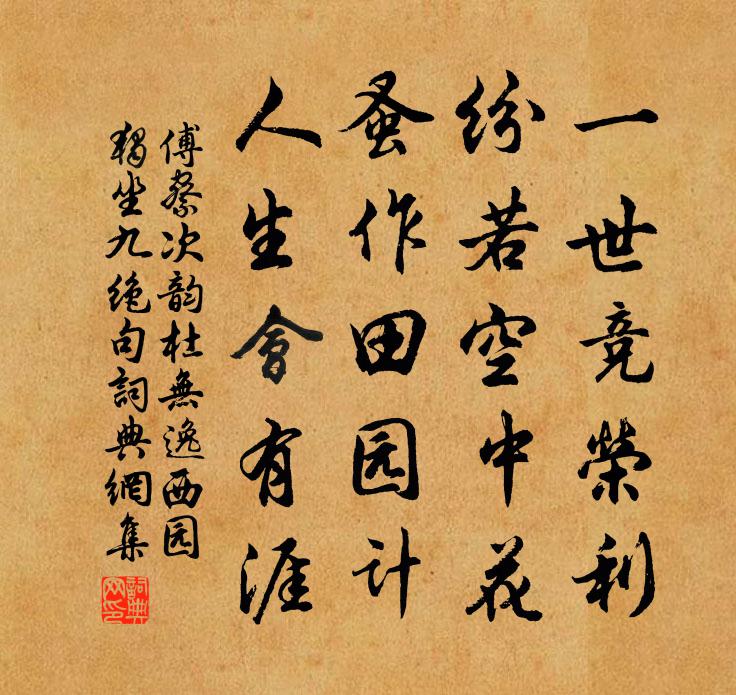 一世竞榮利
纷若空中花
蚤作田园计
人生會有涯
傅察次韵杜無逸西园
獨坐九绝句詞典網集
詞典
网印